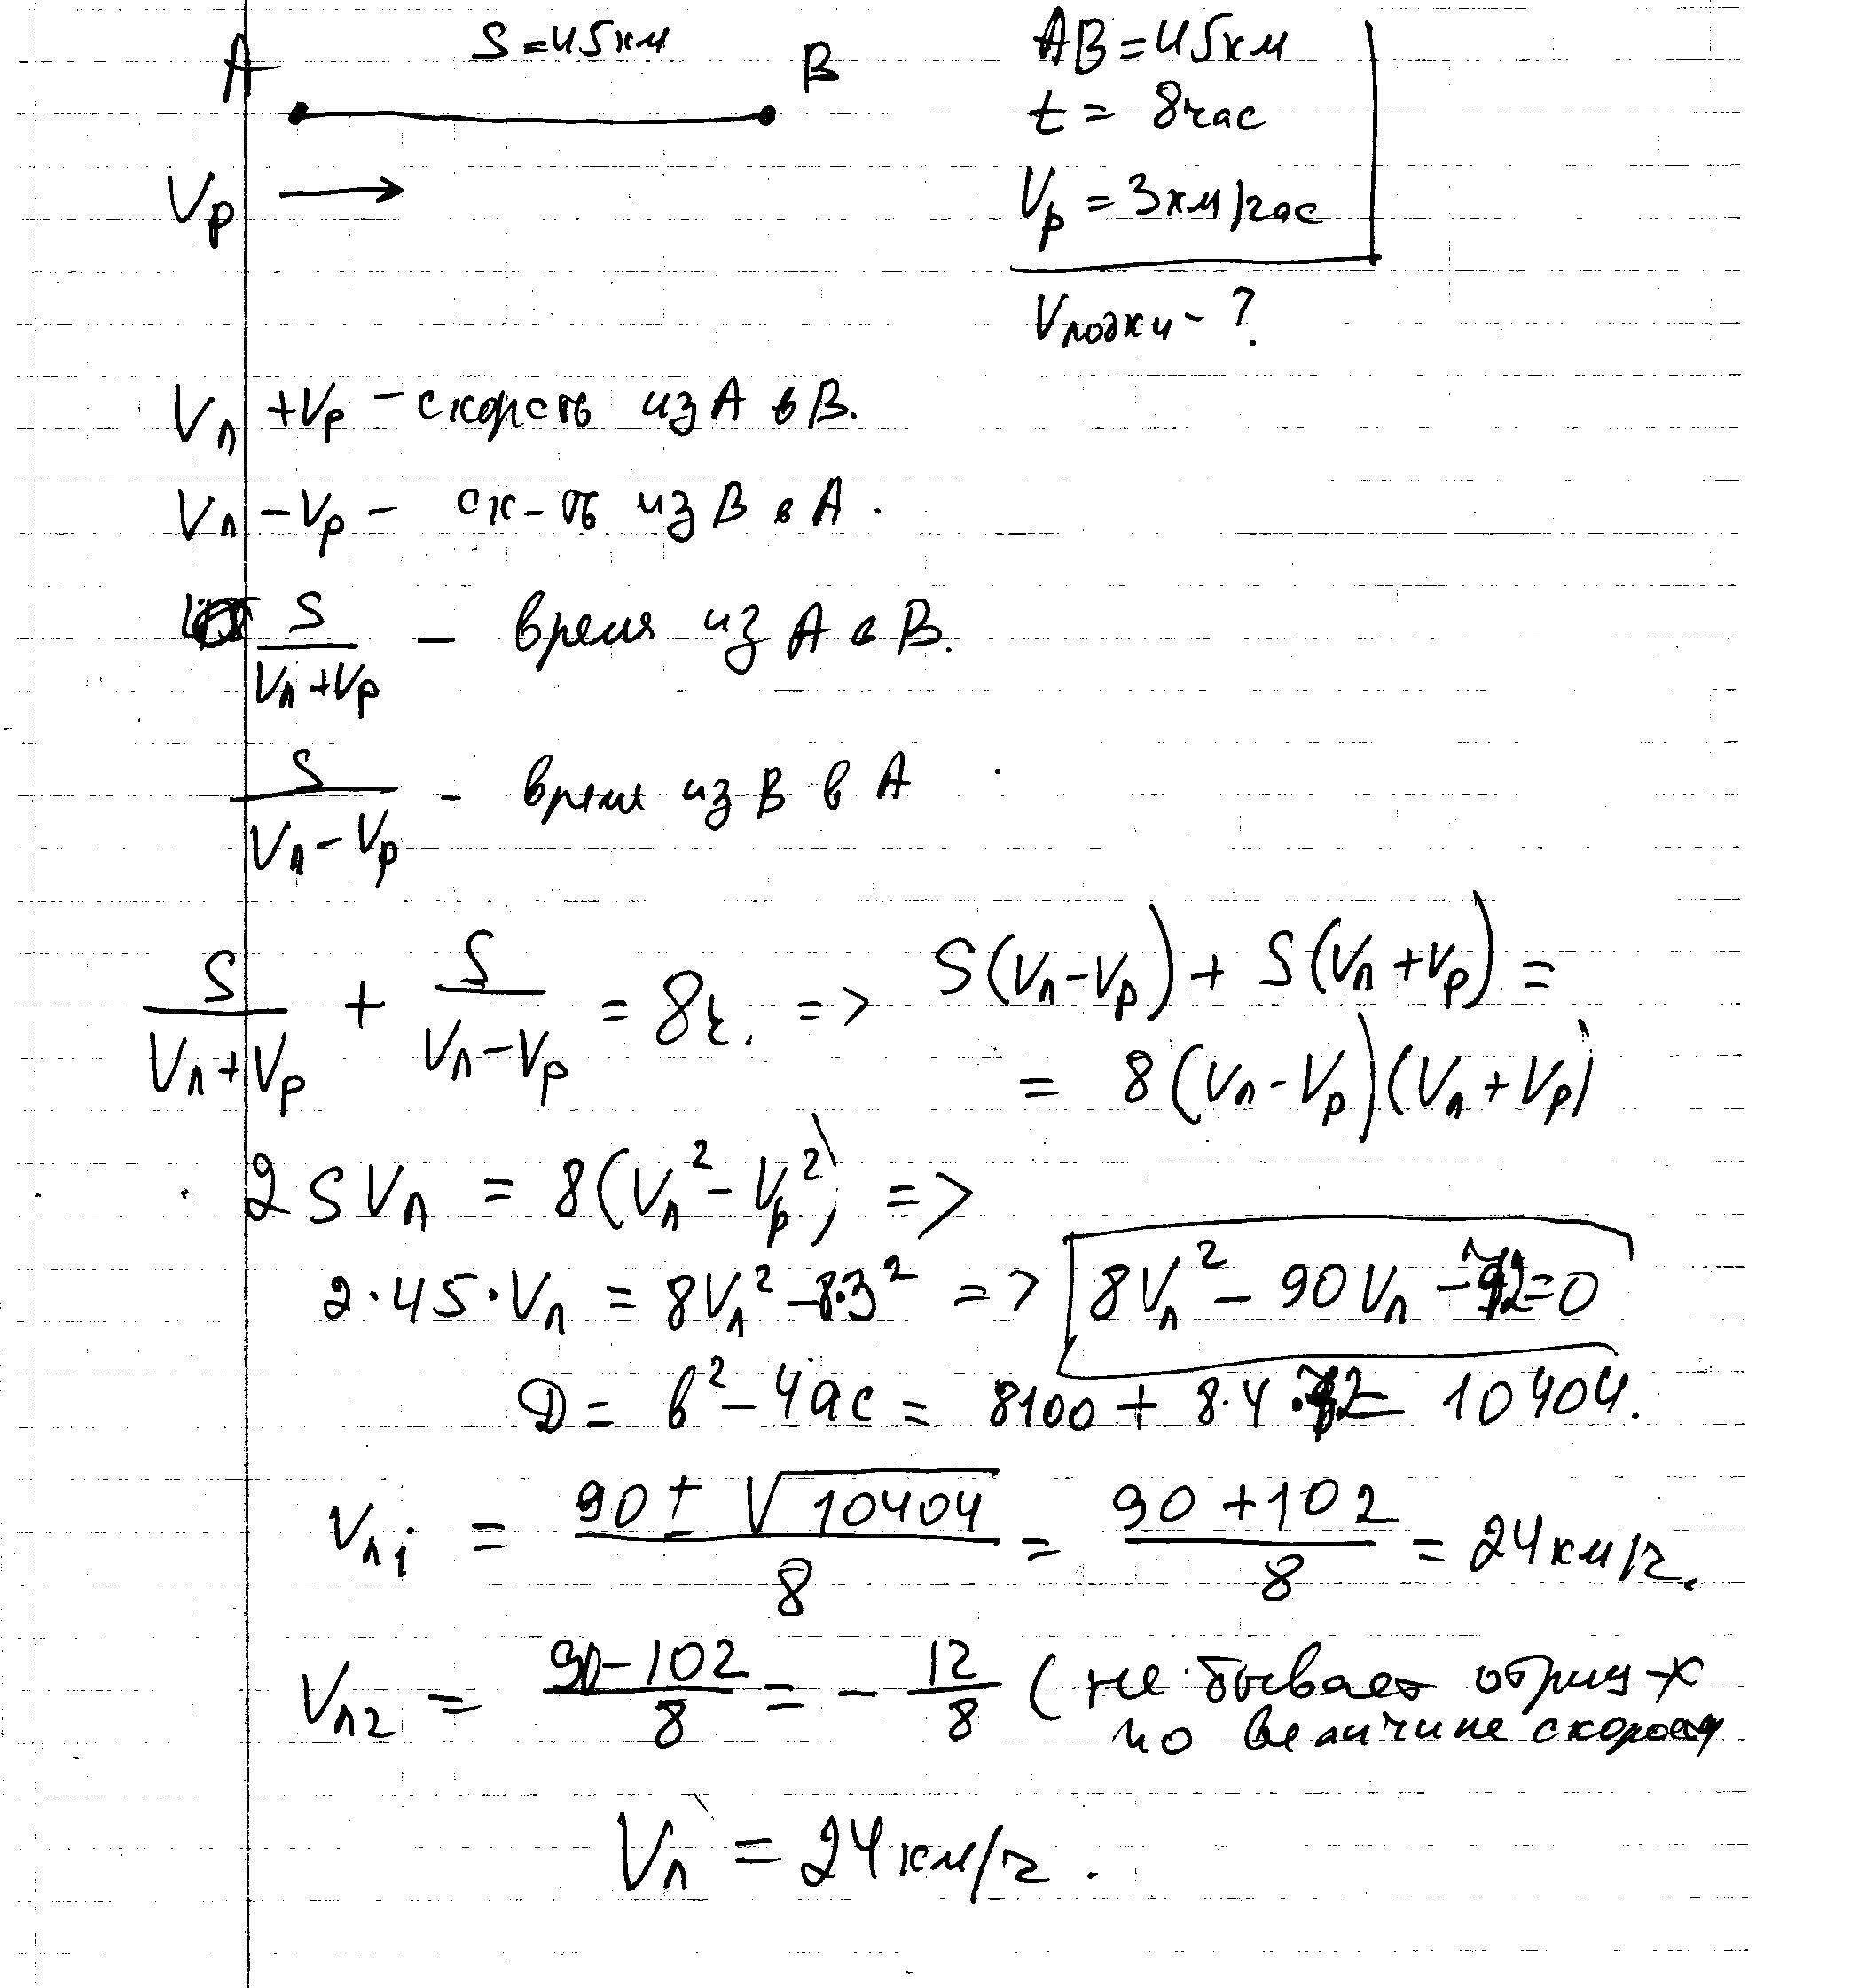 A S = 45км B
Vр →
AB = 45км
t = 8час
Vр = 3км/час
Vлодки - ?
Vл + Vр - скорость из A в B.
Vл - Vр - ск-ть из B в A.
S/(Vл + Vр) - время из A в B.
S/(Vл - Vр) - время из B в A
S/(Vл + Vр) + S/(Vл - Vр) = 8ч. => S(Vл - Vр) + S(Vл + Vр) =
= 8(Vл - Vр)(Vл + Vр)
2SVл = 8(Vл² - Vр²) =>
2·45·Vл = 8Vл² - 8·3² => 8Vл² - 90Vл - 72 = 0
D = b² - 4ac = 8100 + 8·4·72 = 10404.
Vл1 = (90 ± √10404)/8 = (90 + 102)/8 = 24км/ч.
Vл2 = (90 - 102)/8 = - 12/8 (не бывает отриц-х
по величине скорости
Vл = 24км/ч.